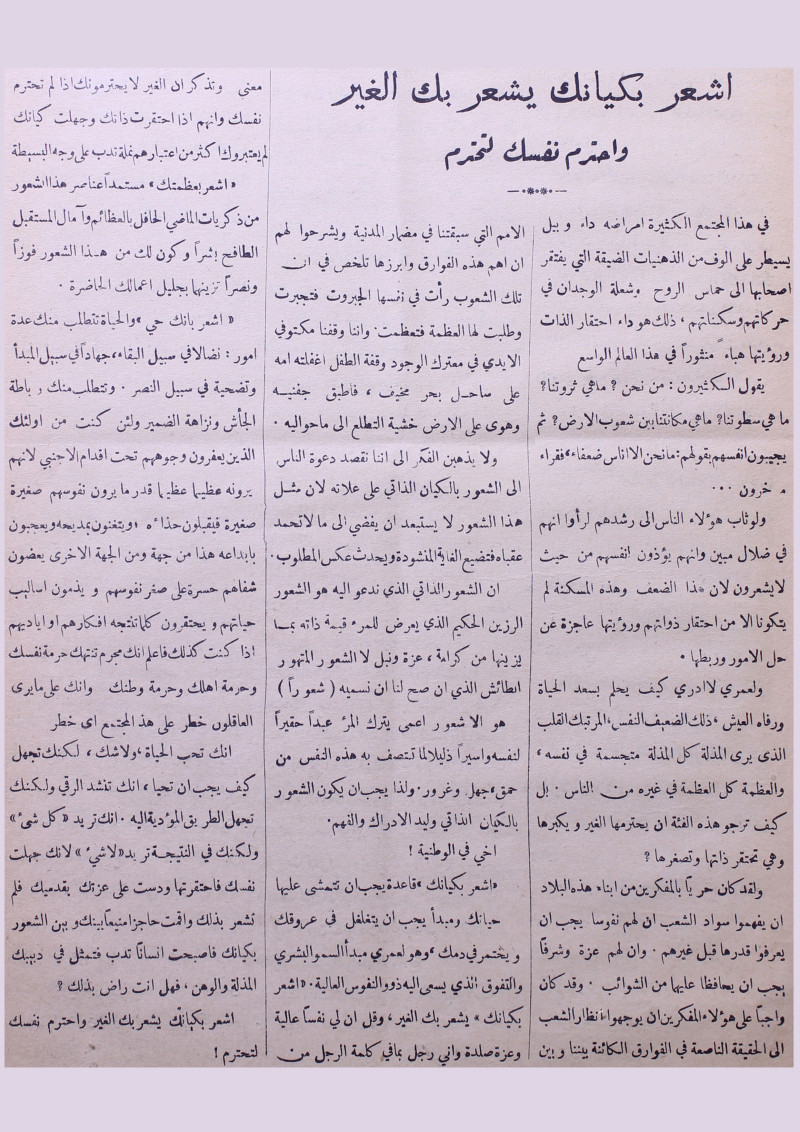 اشعر بكيانك يشعر بك الغير
واحترم نفسك لتحترم
في هذا المجتمع الكثيرة امراضه داء وبيل
يسيطر على الوف من الذهنيات الضيقة التي يفتقر
اصحابها الى حماس الروح وشعلة الوجدان في
حركاتهم وسكناتهم، ذلك هو داء احتقار الذات
ورؤيتها هباء منثوراً في هذا العالم الواسع
يقول الكثيرون: من نحن؟ ماهي ثروتنا؟
ما هي سطوتنا؟ ماهي مكانتنا بين شعوب الارض؟ ثم
يجيبون انفسهم بقولهم: مانحن الا اناس ضعفاء، فقراء
خرون ...
ولو ثاب هؤلاء الناس الى رشدهم لرأوا انهم
في ضلال مبين وانهم يؤذون انفسهم من حيث
لا يشعرون لان هذا الضعف وهذه المسكنة لم
يتكونا الا من احتقار ذواتهم ورؤيتها عاجزة عن
حل الامور وربطها.
ولعمري لا ادري كيف يحلم بسعد الحياة
ورفاه العيش، ذلك الضعيف النفس، المرتبك القلب
الذى يرى المذلة كل المذلة متجسمة في نفسه،
والعظمة كل العظمة في غيره من الناس. بل
كيف ترجو هذه الفئة ان يحترمها الغير ويكبرها
وهي تحتقر ذاتها وتصغرها؟
ولقد كان حرياً بالمفكرين من ابناء هذه البلاد
ان يفهموا سواد الشعب ان لهم نفوسا يجب ان
يعرفوا قدرها قبل غيرهم. وان لهم عزة وشرفاً
يجب ان يحافظا عليها من الشوائب. وقد كان
واجباً على هؤلاء المفكرين ان يوجهوا انظار الشعب
الى الحقيقة الناصعة في الفوارق الكائنة بيننا وبين
الامم التي سبقتنا في مضمار المدنية ويشرحوا لهم
ان اهم هذه الفوارق وابرزها تلخص في ان
تلك الشعوب رأت في نفسها الجبروت فتجبرت
وطلبت لها العظمة فتعظمت. واننا وقفنا مكتوفي
الايدي في معترك الوجود وقفة الطفل اغفلته امه
على ساحل بحر مخيف، فاطبق جفنيه
وهوى على الارض خشية التطلع الى ماحواليه.
ولا يذهبن الفكر الى اننا نقصد دعوة الناس
الى الشعور بالكيان الذاتي على علاته لان مثل
هذا الشعور لا يستبعد ان يفضي الى ما لا تحمد
عقباه فتضيع الغاية المنشودة ويحدث عكس المطلوب.
ان الشعور الذاتي الذي ندعو اليه هو الشعور
الرزين الحكيم الذي يعرض للمرء قيمة ذاته بما
يزينها من كرامة، عزة ونبل لا الشعور المتهور
الطائش الذي ان صح لنا ان نسميه (شعوراً)
هو الا شعور اعمى يترك المرء عبداً حقيراً
لنفسه واسيراً ذليلا لما تتصف به هذه النفس من
حمق، جهل وغرور. ولذا يجب ان يكون الشعور
بالكيان الذاتي وليد الادراك والفهم.
اخي في الوطنية!
«اشعر بكيانك» قاعدة يجب ان تتمشى عليها
حياتك ومبدأ يجب ان يتغلغل في عروقك
ويختمر في دمك، وهو لعمري مبدأ السمو البشري
والتفوق الذي يسعى اليه ذوو النفوس العالية. «اشعر
بكيانك» يشعر بك الغير، وقل ان لي نفساً عالية
وعزة صلدة واني رجل بما في كلمة الرجل من
معنى وتذكر ان الغير لا يحترمونك اذا لم تحترم
نفسك وانهم اذا احتقرت ذاتك وجهلت كيانك
لم يعتبروك اكثر من اعتبارهم نملة تدب على وجه البسيطة
«اشعر بعظمتك» مستمداً عناصر هذا الشعور
من ذكريات الماضي الحافل بالعظائم وآمال المستقبل
الطافح بشراً وكون لك من هذا الشعور فوزاً
ونصراً تزينها بجليل اعمالك الحاضرة.
«اشعر بانك حي» والحياة تتطلب منك عدة
امور: نضالا في سبيل البقاء، جهاداً في سبيل المبدأ
وتضحية في سبيل النصر. وتتطلب منك رباطة
الجأش ونزاهة الضمير ولئن كنت من اولئك
الذين يعفرون وجوههم تحت اقدام الاجنبي لانهم
يرونه عظيما عظيما قدر ما يرون نفوسهم صغيرة
صغيرة فيقبلون حذاءه، ويتغنون بمديحه ويعجبون
بابداعه هذا من جهة ومن الجهة الاخرى يعضون
شفاهم حسرة على صغر نفوسهم ويذمون اساليب
حياتهم ويحتقرون كلما تنتجه افكارهم او اياديهم
اذا كنت كذلك فاعلم انك مجرم تنتهك حرمة نفسك
وحرمة اهلك وحرمة وطنك وانك على ما يرى
العاقلون خطر على هذ المجتمع اى خطر
انك تحب الحياة، ولاشك، لكنك تجهل
كيف يجب ان تحيا، انك تنشد الرقي ولكنك
تجهل الطريق المؤدية اليه. انك تريد «كل شئ»
ولكنك في النتيجة تريد «لا شئ» لانك جهلت
نفسك فاحتقرتها ودست على عزتك بقدميك فلم
تشعر بذلك واقمت حاجزا منيعاً بينك وبين الشعور
بكيانك فاصبحت انساناً تدب فتمثل في دبيبك
المذلة والوهن، فهل انت راض بذلك؟
اشعر بكيانك يشعر بك الغير واحترم نفسك
لتحترم!